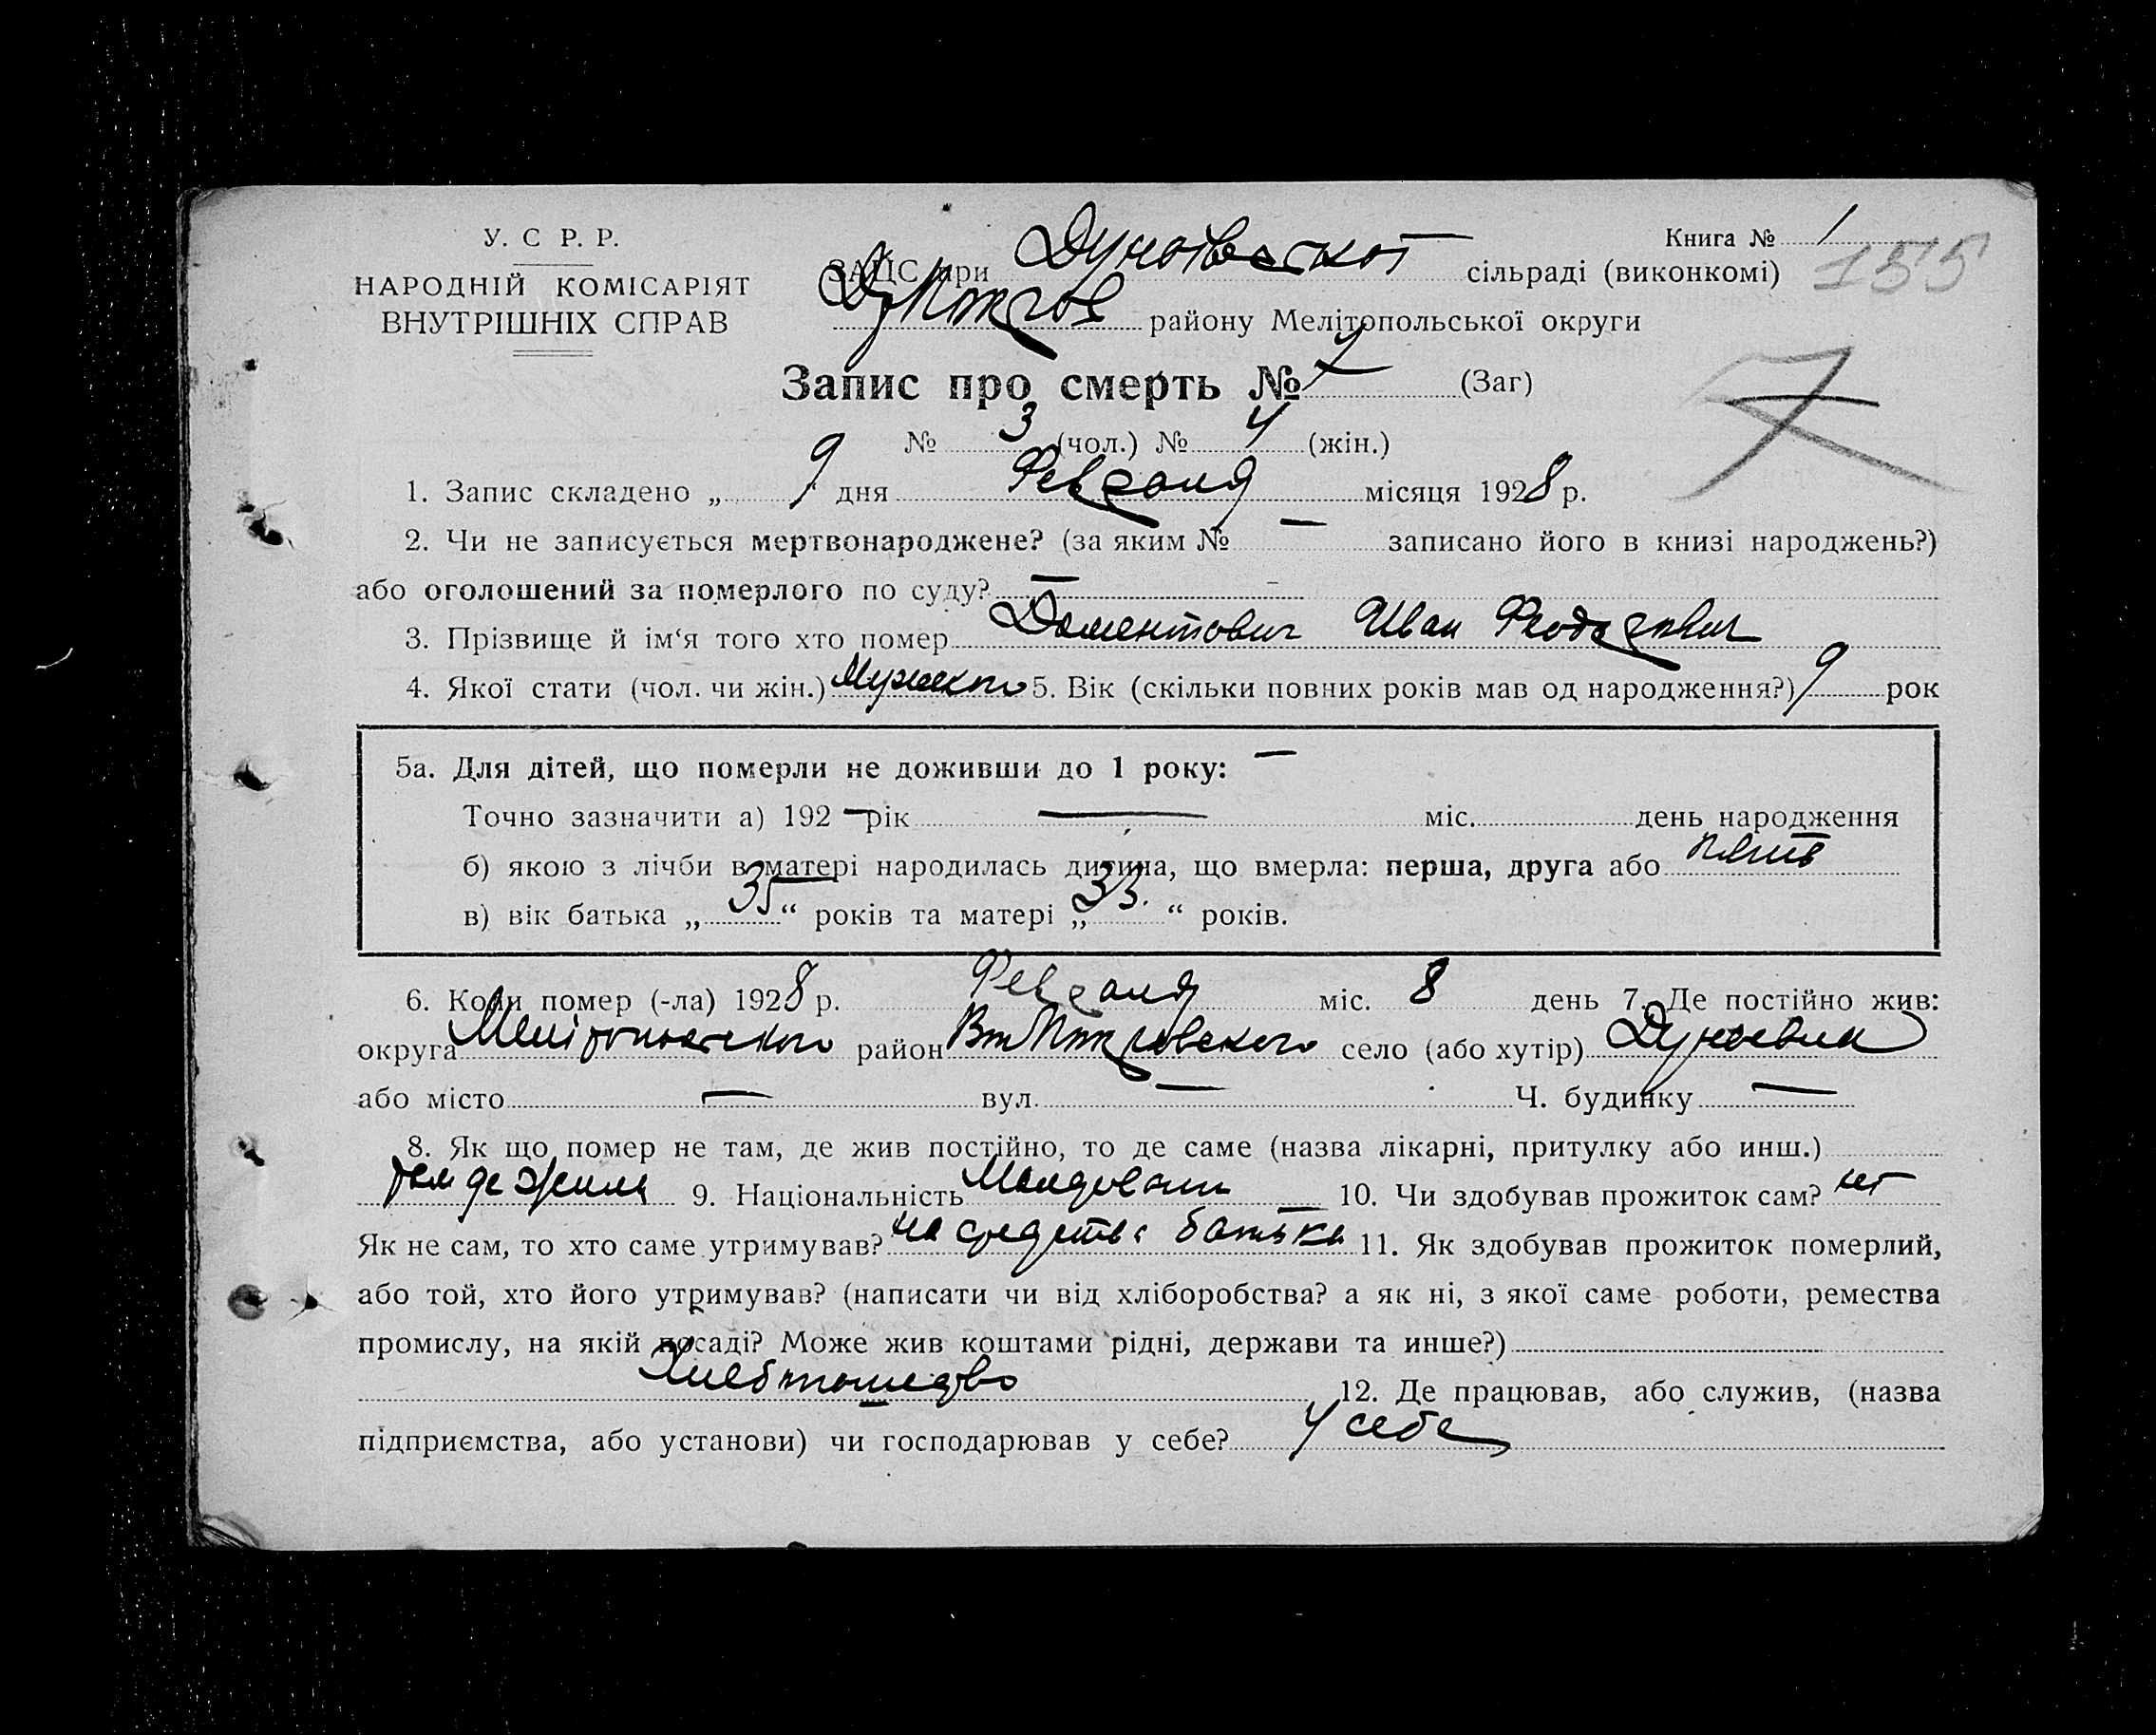 У. С Р. Р.
НАРОДНІЙ КОМІСАРІЯТ
ВНУТРІШНІХ СПРАВ
Книга № 1
155
ЗАГС при Дуноївської сільраді (виконкомі)
району Мелітопольської округи
Запис про смерть № 7 (Заг)
7
№ 3 (чол.) № 4 (жін.)
1. Запис складено „ 9 дня Февраля місяця 1928 р.
2. Чи не записується мертвонароджене? (за яким № — записано його в книзі народжень?)
або оголошений за померлого по суду? —
3. Прізвище й ім‘я того хто помер Доментович Иван Феодорович
4. Якої стати (чол. чи жін.) Мужского 5. Вік (скільки повних років мав од народження?) 9 рок
5а. Для дітей, що померли не доживши до 1 року: —
Точно зазначити а) 192 — рік — міс. день народження
б) якою з лічби в матері народилась дитина, що вмерла: перша, друга або
в) вік батька „ 35 “ років та матері „ 33. “ років.
6. Коли помер (-ла) 1928 р. Февраля міс. 8 день 7. Де постійно жив:
округа Мелітопольского район село (або хутір) Дуноевка
або місто — вул. — Ч. будинку —
8. Як що помер не там, де жив постійно, то де саме (назва лікарні, притулку або инш.)
там де жила 9. Національність Молдован 10. Чи здобував прожиток сам? нет
Як не сам, то хто саме утримував? на средства батька 11. Як здобував прожиток померлий,
або той, хто його утримував? (написати чи від хліборобства? а як ні, з якої саме роботи, ремества
промислу, на якій посаді? Може жив коштами рідні, держави та инше?)
12. Де працював, або служив, (назва
підприємства, або установи) чи господарював у себе? У себе